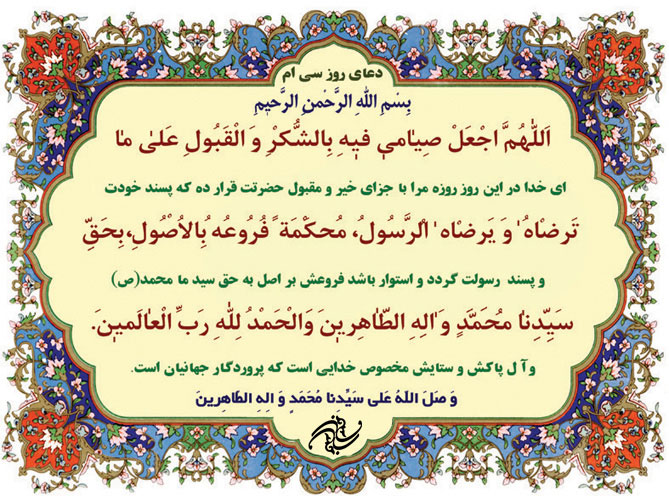 دعای روز سی ام
بِسْمِ اللهِ الرَّحْمنِ الرَّحیمِ
اَللّهُمَّ اجْعَلْ صِیامی فیهِ بِالشُّکْرِ وَ الْقَبُولِ عَلیٰ ما
ای خدا در این روز روزه مرا با جزای خیر و مقبول حضرتت قرار ده که پسند خودت
تَرضاهُ وَ یَرضاه الرَّسُولُ، مُحکَمَةً فُرُوعُه بِالاُصُولِ، بِحَقِّ
و پسند رسولت گردد و استوار باشد فروعش بر اصل به حق سید ما محمد(ص)
سَیِّدِنا محُمَّدٍ وَالِهِ الطّاهِرینَ وَالْحَمْدُ لِلّهِ رَبِّ الْعالَمینَ.
و آل پاکش و ستایش مخصوص خدایی است که پروردگار جهانیان است.
وَ صَلَ اللهُ عَلی سَیِّدِنا مُحَمَدٍ وَ الِهِ الطاهِرینَ